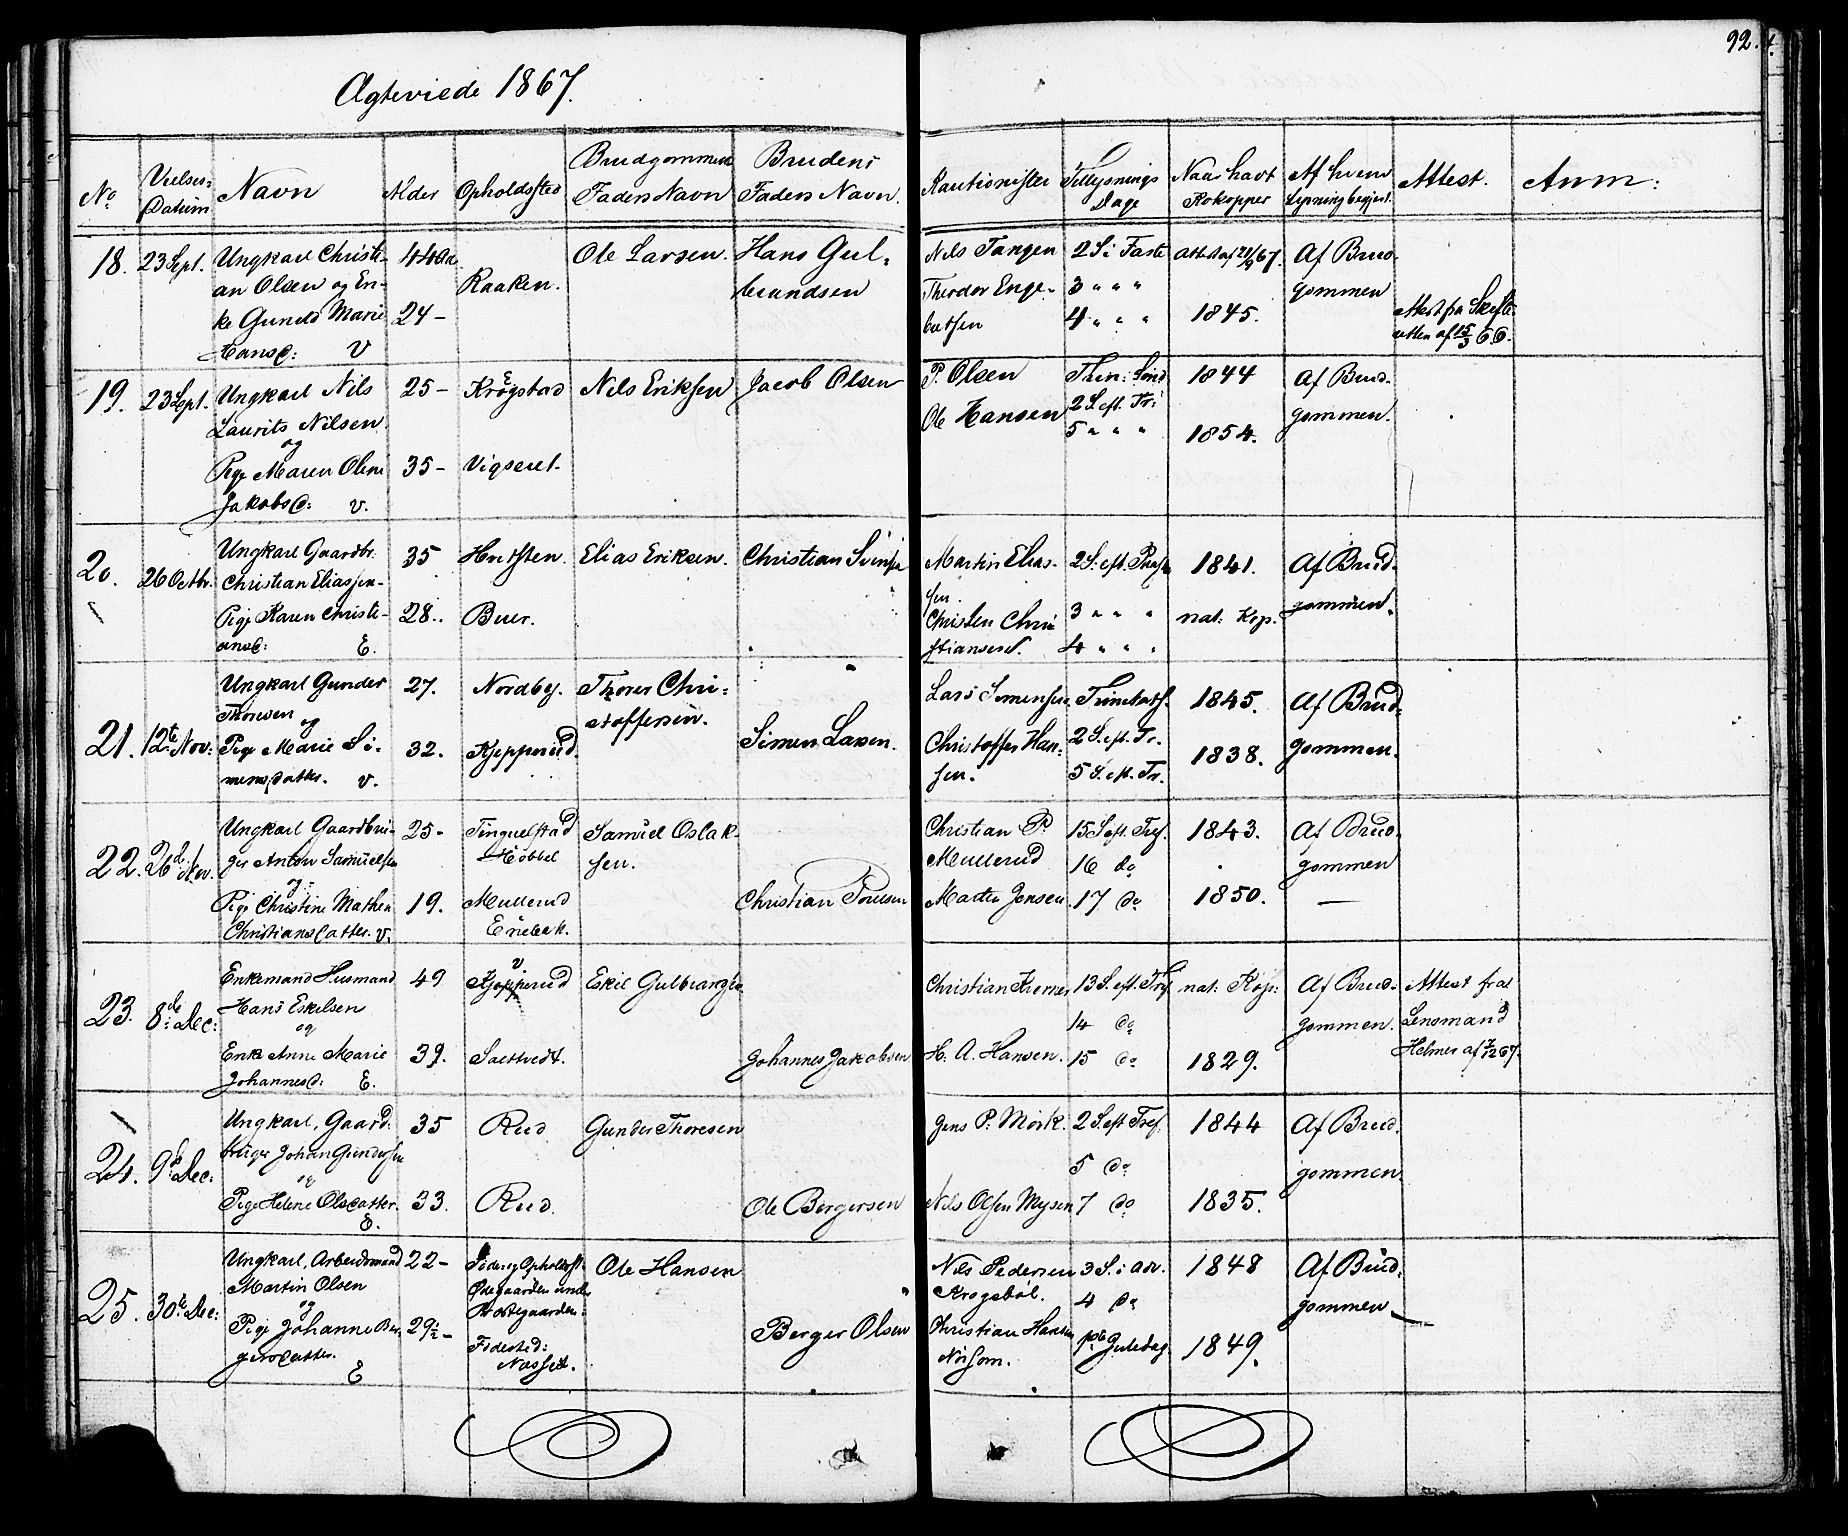 92.
Ægteviede 1867.
No
Vielses-
Datum
Navn
Alder
Opholdssted
Brudgommens
Faders Navn
Brudens
Faders Navn.
Kautionister
Tillysnings
Dage
Naar havt
Kokopper
Af hvem
Lysning begjert.
Attest.
Anm:
18. 23 Sept.
Ungkarl Christi-
an Olsen og En-
ke Gunild Marie
Hansd: V
44 Aar
24 –
Raaken.
Ole Larsen.
Hans Gul-
brandsen
Nils Tangen
Theodor Enge-
bretsen
2 S. i Faste
3 " " "
4 " " "
1845.
Af Brud-
gommen
Attest fra Skifte-
retten af 15/3 66.
19. 23 Sept.
Ungkarl Nils
Laurits Nilsen
og
Pige Maren Oline
Jakobsd: V.
25 –
35 –
Krogstad
Vigseret.
Nils Eriksen
Jacob Olsen
P. Olsen
Ole Hansen
Trin: Sønd
2 S. eft. Tr:
5 " " "
1844
1854.
Af Brud-
gommen.
20. 26 Octbr.
Ungkarl Gaardbr.
Christian Eliassen
Pige Karen Christi-
ansd: E.
35
28..
Hersten.
Buer.
Elias Eriksen.
Christian
Martin Elias-
sen.
Christen Chri-
stiansen.
2 S: eft. Paaske
3 " " "
4 " " "
1841.
nat: Kop.
Af Brud-
gommen.
21. 12te Nov:
Ungkarl Gunder
Thoresen
og
Pige Marie Si-
mensdatter. V.
27.
32.
Nordby.
Kjepperud.
Thorer Chri-
stoffersen.
Simen Larsen.
Lars Simensen
Christoffer Han-
sen.
Trinitatis
2 S. eft. Tr.
5 S. eft. Tr.
1845.
1838.
Af Brud-
gommen.
22. 26de Nov.
Ungkarl Gaardbru-
ger Anton Samuelsen
og
Pige Christine Mathea
Christiansdatter. V.
25 –
19.
Tinguelstad
Hobbel
Mullerud
Enebak.
Samuel Oslak-
sen.
Christian Poulsen
Christian P.
Mullerud
Martin Jensen
15 S. eft. Tref.
16 do
17 do
1843.
1850.
Af Brud-
gommen
—
23. 8de Dec:
Enkemand Husmand
Hans Eskilsen
og
Enke Anne Marie
Johannesd: E.
49
39.
Kjepperud
Sastvedt.
Eskil Gulbrandsen
Johannes Jakobsen
Christian Kremer
H. A. Hansen.
13 S. eft. Tref
14 do
15 do
nat: Kop:
1829.
Af Brud-
gommen.
Attest fra
Lensmand
Helmer af 7/12 67.
24. 9de Dec:
Ungkarl, Gaard-
bruger Johan Gundersen
og
Pige Helene Olsdatter.
E.
35
33.
Rud
Rud.
Gunder Thoresen
Ole Bergersen
Jens P. Mørk.
Nils Olsen Mysen
2 S. eft Tref.
5 do
7 do
1844
1835.
Af Brud-
gommen.
25. 30te Dec:
Ungkarl, Arbeidsmand
Martin Olsen
og
Pige Johanne Ber-
gersdatter.
E
22 –
29½ –
Føde og Opholdsst.
Ødegaarden under
Prestegaarden.
Fødested:
Næsset.
Ole Hansen
Berger Olsen
Nils Pedersen
Krogsbøl.
Christian Hansen
Nørsom.
3 S. i Adv.
4 do
1ste Juledag
1848
1849.
Af Brud-
gommen